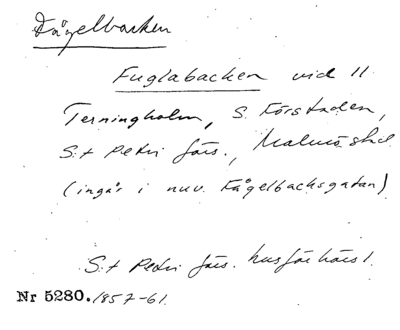 Fågelbacken
Fuglabacken vid 11
Terningholm, S. Förstaden,
S:t Petri förs., Malmöshus
(ingår i nuv. Fågelbacksgatan)
S:t Petri förs. husförhörsl.
Nr 5280. 1857-61.